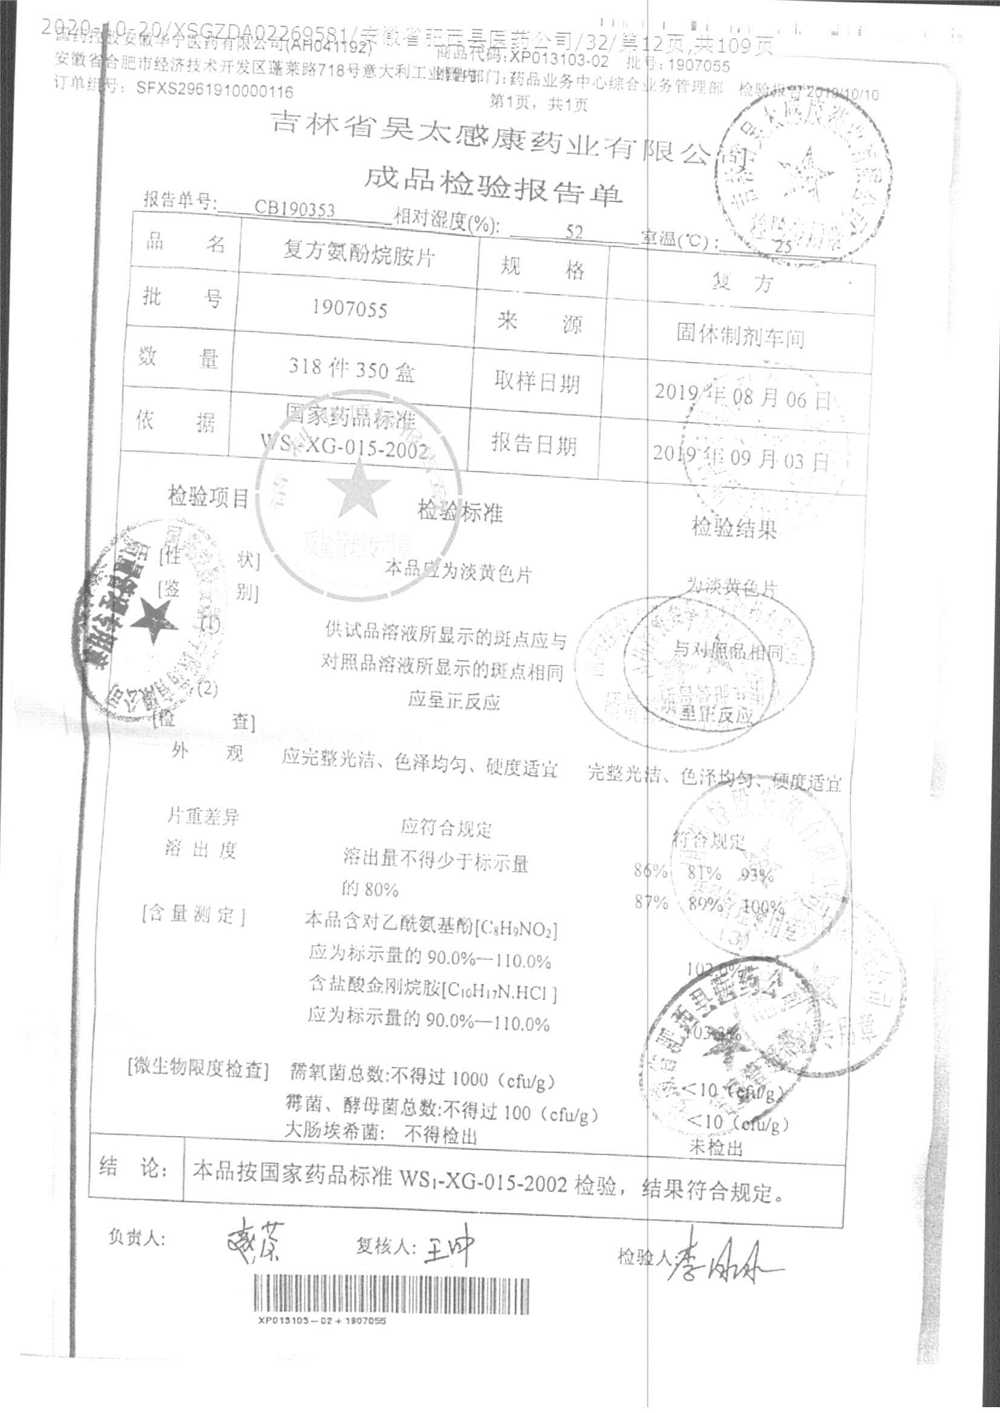 2020-10-20/XSGZDA02269581/安徽省肥西县医药公司/32/第12页,共109页
国药控股安徽华宁医药有限公司(AH041192) 商品代码:XP013103-02 批号:1907055
安徽省合肥市经济技术开发区蓬莱路718号意大利工业园 部门:药品业务中心综合业务管理部 检验报告 2019/10/10
订单编号: SFXS2961910000116 第1页, 共1页
吉林省吴太感康药业有限公司
成品检验报告单
报告单号: CB190353 相对湿度(%): 52 室温(℃): 25
品 名 复方氨酚烷胺片 规 格 复 方
批 号 1907055 来 源 固体制剂车间
数 量 318 件 350 盒 取样日期 2019 年 08 月 06 日
依 据 国家药品标准 WS₁-XG-015-2002 报告日期 2019 年 09 月 03 日
检验项目 检验标准 检验结果
[性 状] 本品应为淡黄色片 为淡黄色片
[鉴 别]
(1) 供试品溶液所显示的斑点应与 与对照品相同
对照品溶液所显示的斑点相同
(2) 应呈正反应 呈正反应
[检 查]
外 观 应完整光洁、色泽均匀、硬度适宜 完整光洁、色泽均匀、硬度适宜
片重差异 应符合规定 符合规定
溶 出 度 溶出量不得少于标示量 86% 81% 93%
的 80% 87% 89% 100%
[含 量 测 定] 本品含对乙酰氨基酚[C₈H₉NO₂]
应为标示量的 90.0%—110.0%
含盐酸金刚烷胺[C₁₀H₁₇N.HCl]
应为标示量的 90.0%—110.0%
[微生物限度检查] 需氧菌总数:不得过 1000（cfu/g） <10（cfu/g）
霉菌、酵母菌总数:不得过 100（cfu/g） <10（cfu/g）
大肠埃希菌: 不得检出 未检出
结 论: 本品按国家药品标准 WS₁-XG-015-2002 检验，结果符合规定。
负责人: 复核人: 王坤 检验人:
XP013103-02+1907055